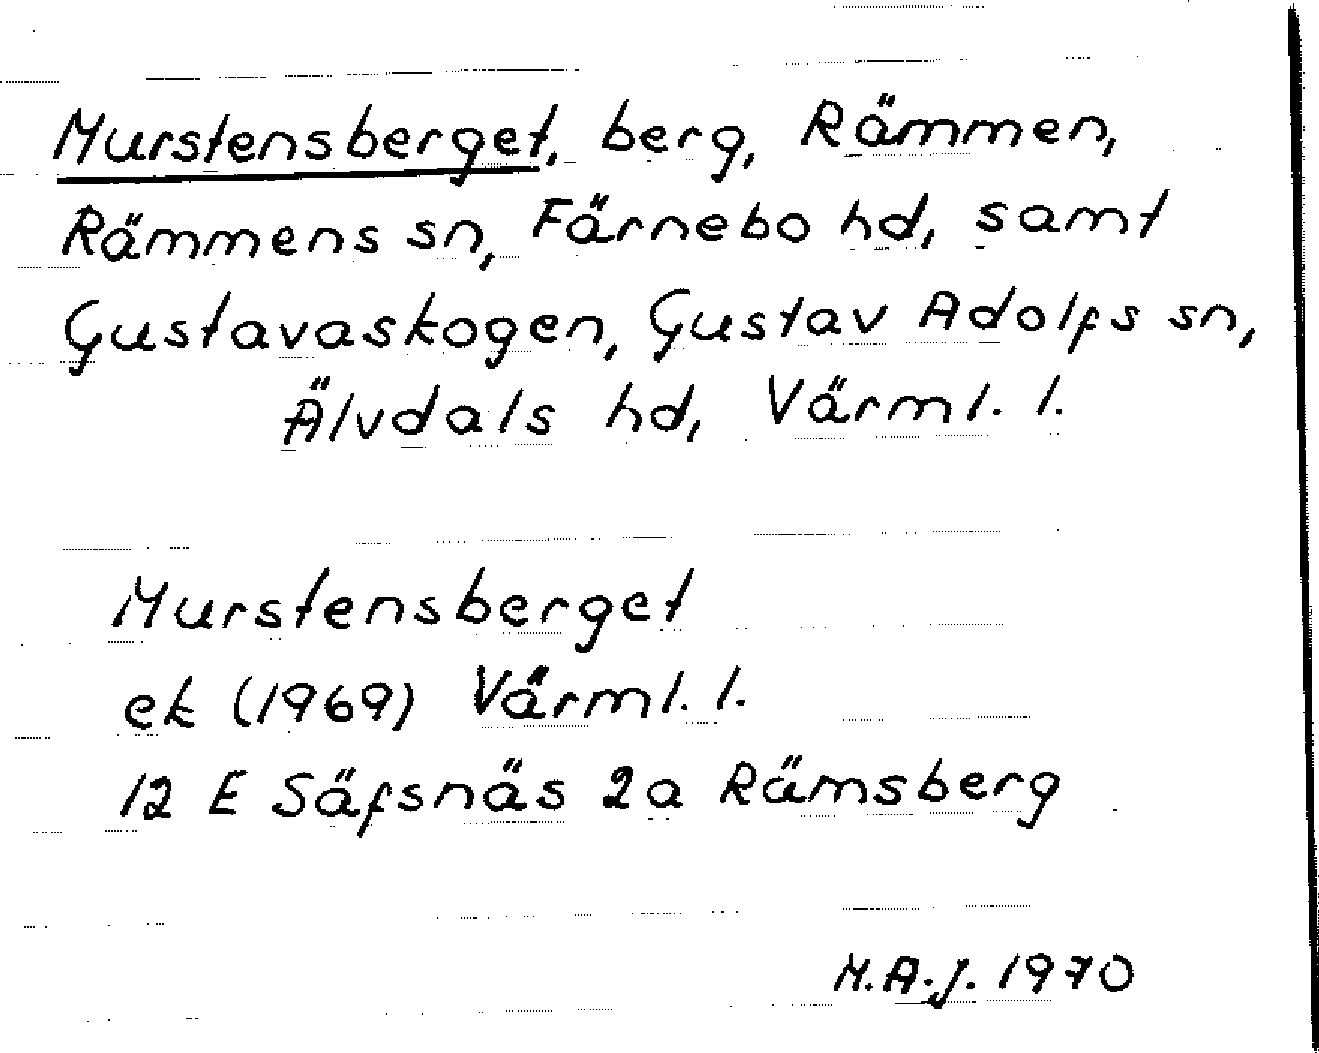 Murstensberget, berg, Rämmen,
Rämmens sn, Färnebo hd, samt
Gustavaskogen, Gustav Adolfs sn,
Älvdals hd, Värml. l.
Murstensberget
ek (1969) Värml. l.
12 E Säfsnäs 2a Rämsberg
M.A.J. 1970